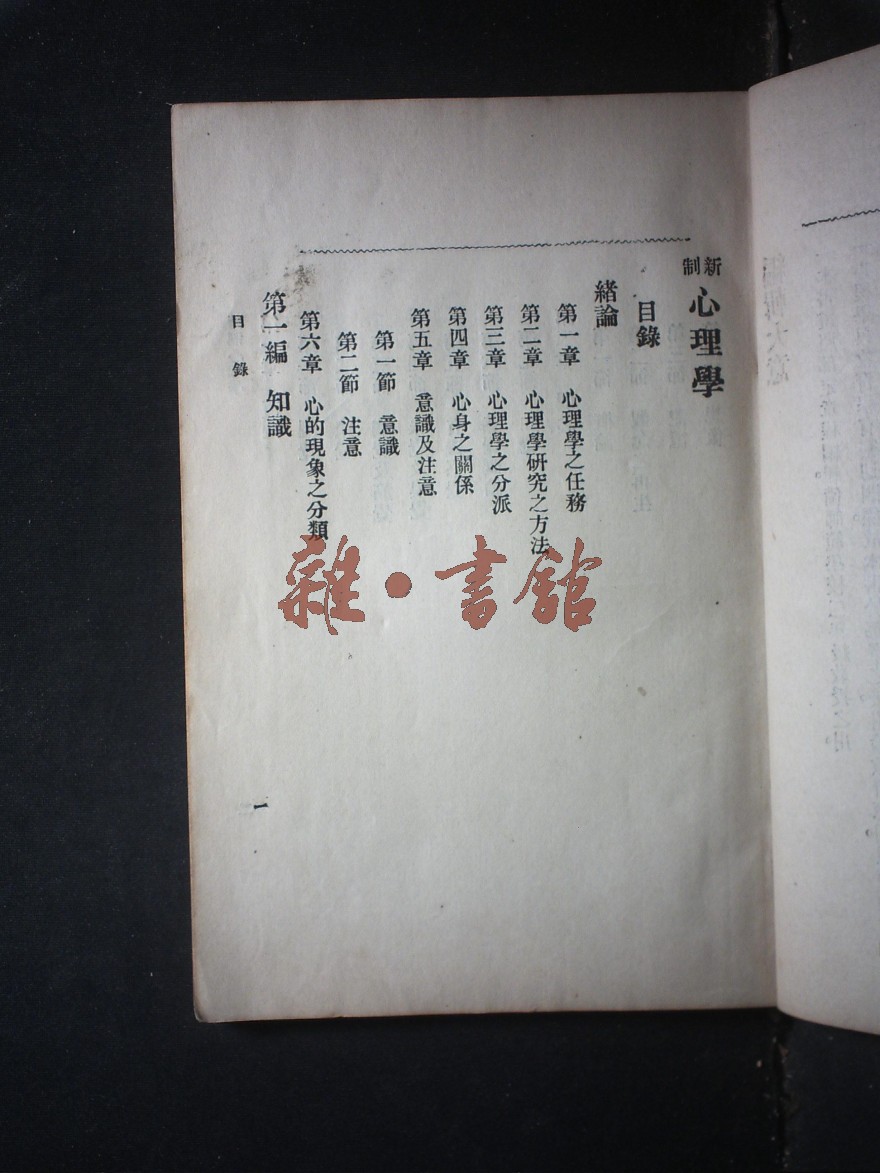 新制心理學
目錄
緒論
第一章 心理學之任務
第二章 心理學研究之方法
第三章 心理學之分派
第四章 心身之關係
第五章 意識及注意
第一節 意識
第二節 注意
第六章 心的現象之分類
第一編 知識
目錄
一
雜·書館